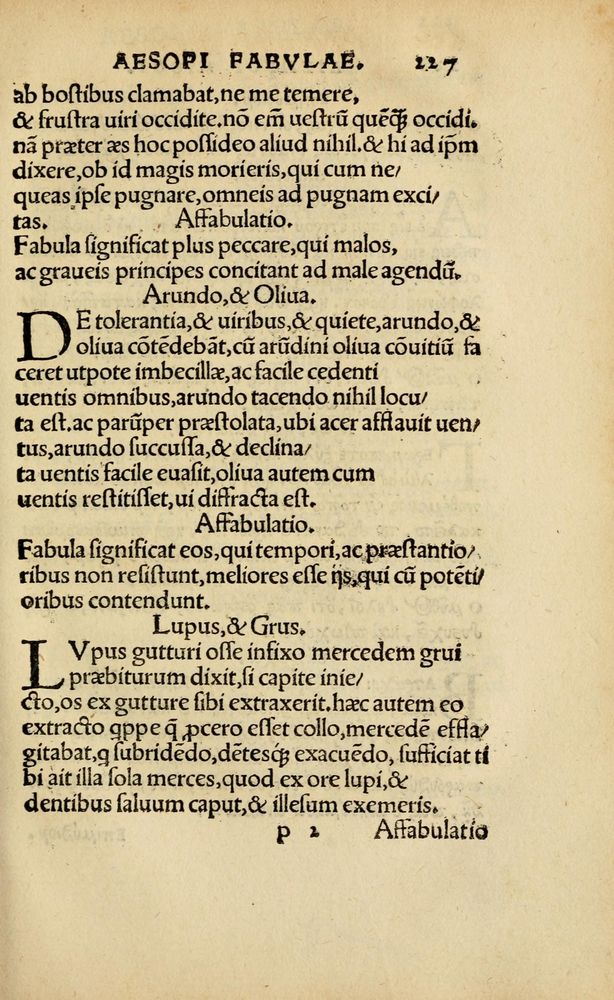 AESOPI FABVLAE. 227
ab hostibus clamabat, ne me temere,
& frustra uiri occidite. nō em̄ uestrū quēq̃ occidi.
nā præter æs hoc possideo aliud nihil. & hi ad ip̄m
dixere, ob id magis morieris, qui cum ne/
queas ipse pugnare, omneis ad pugnam exci/
tas. Affabulatio.
Fabula significat plus peccare, qui malos,
ac graueis principes concitant ad male agendū.
Arundo, & Oliua.
DE tolerantia, & uiribus, & quiete, arundo, &
oliua cōtēdebāt, cū arūdini oliua cōuitiū fa
ceret utpote imbecillæ, ac facile cedenti
uentis omnibus, arundo tacendo nihil locu/
ta est. ac parūper præstolata, ubi acer afflauit uen/
tus, arundo succussa, & declina/
ta uentis facile euasit, oliua autem cum
uentis restitisset, ui diffracta est.
Affabulatio.
Fabula significat eos, qui tempori, ac præstantio/
ribus non resistunt, meliores esse ijs, qui cū potēti/
oribus contendunt.
Lupus, & Grus.
LVpus gutturi osse infixo mercedem grui
præbiturum dixit, si capite inie/
cto, os ex gutture sibi extraxerit. hæc autem eo
extracto qppe q̄ ꝓcero esset collo, mercedē effla/
gitabat, q subridēdo, dētesq̃ exacuēdo, sufficiat ti
bi ait illa sola merces, quod ex ore lupi, &
dentibus saluum caput, & illesum exemeris.
p 2 Affabulatio